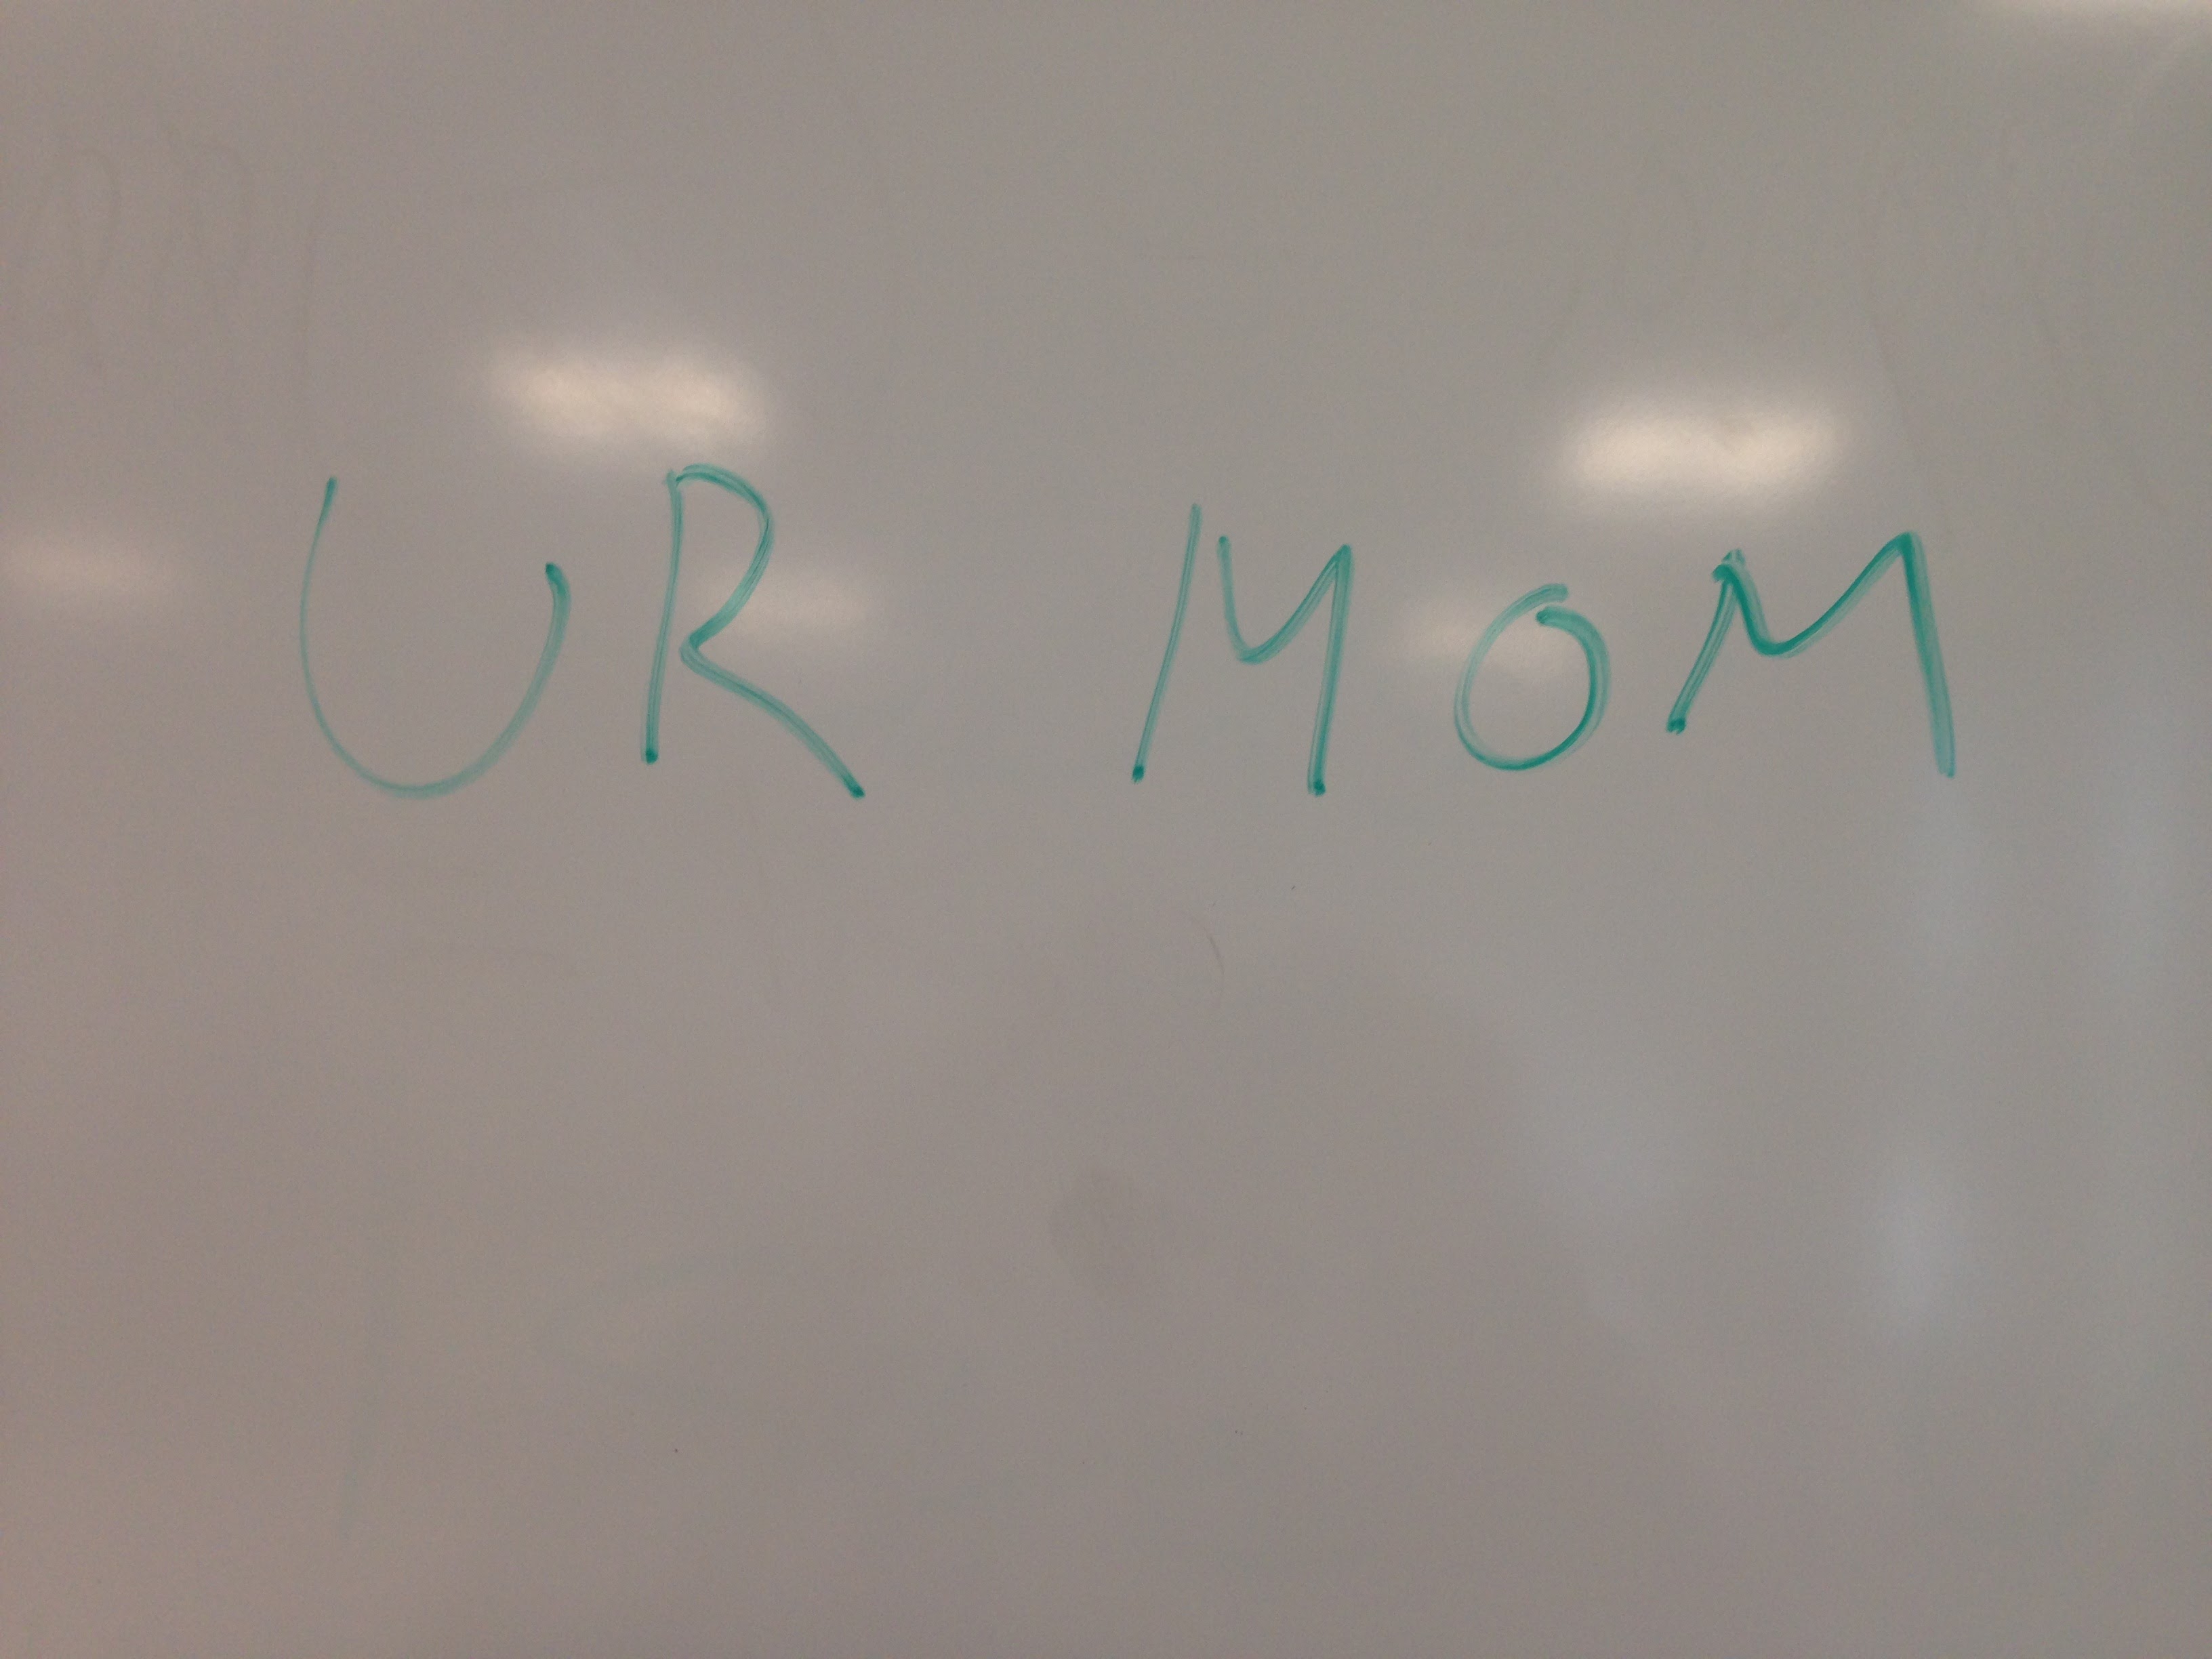 UR MOM